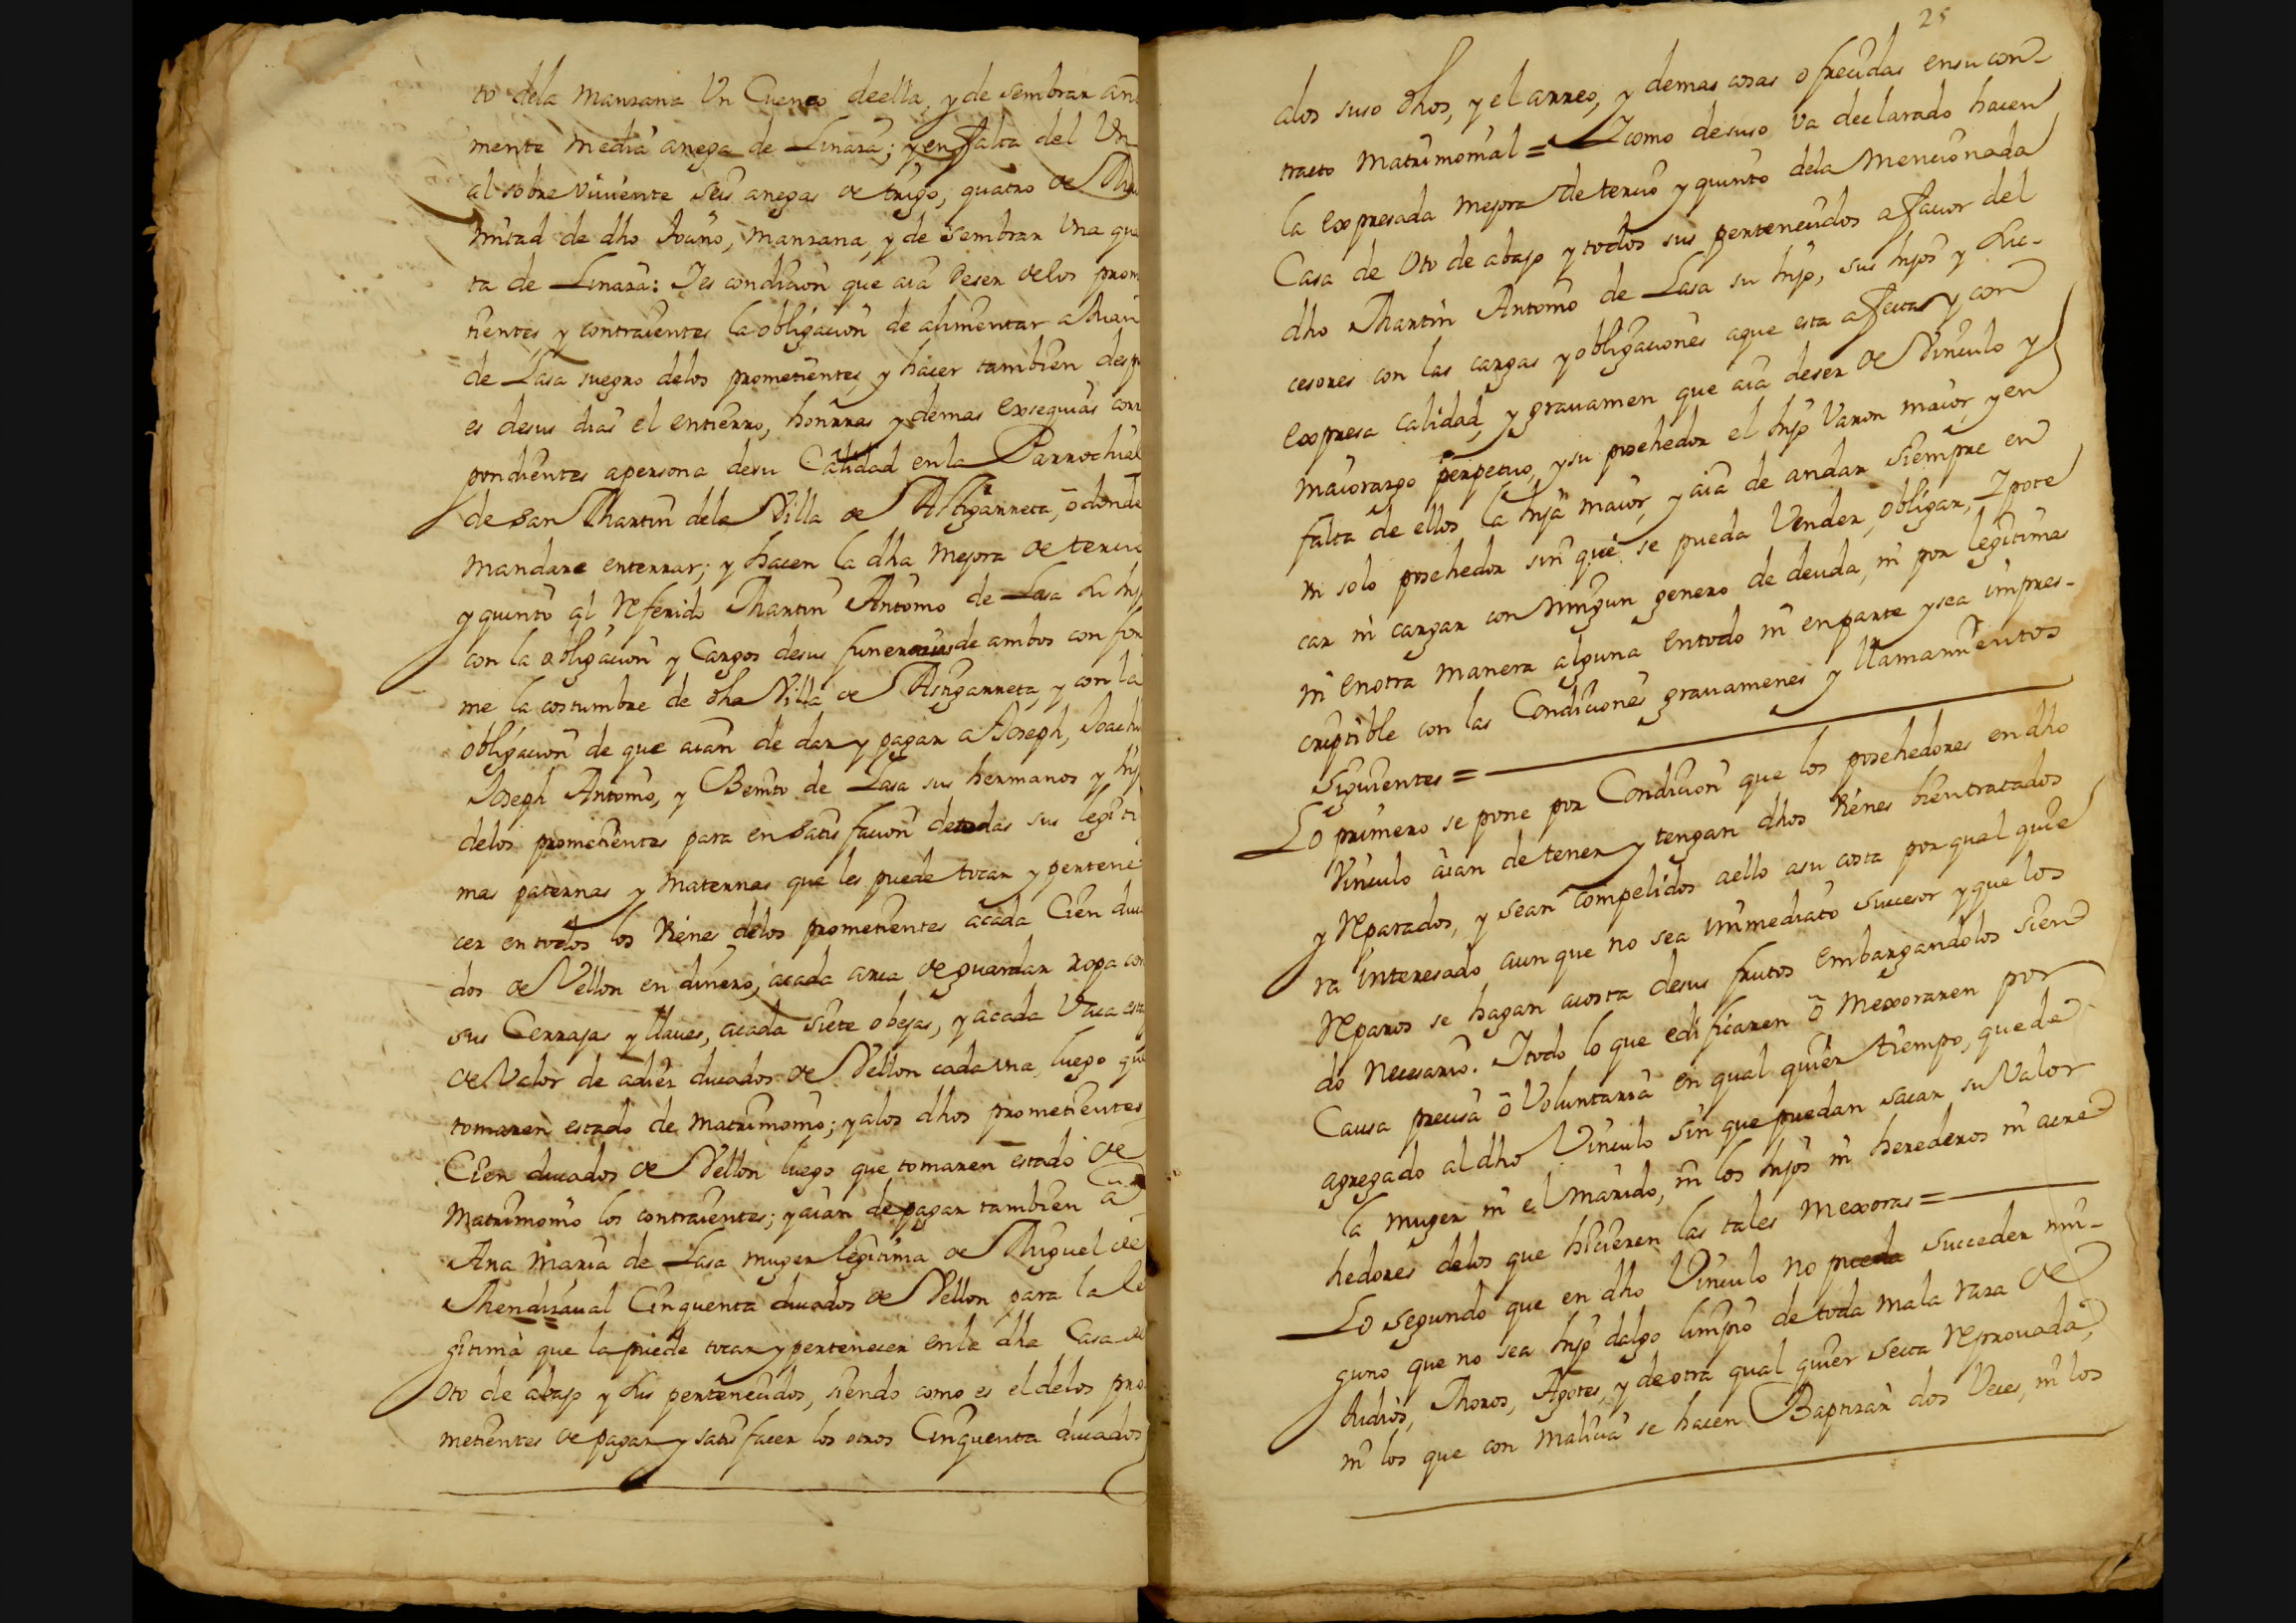 to dela manzana Un Cuenco deella, y de sembrar an
mente media anega de Linaza; y en falta del Un
al sobre viuiente seis anegas de trigo, quatro de
mitad de dho toçino, manzana, y de sembrar Una qu
ta de Linaza: Y es condiçion que aia deser delos prom
tientes y contraientes la obligaçion de alimentar a Juan
de Lasa suegro delos prometientes y haçer tambien desp
es desus dias el entierro, honrras y demas exsequias corr
pondientes apersona desu Calidad en la Parrochial
de San Martin dela Villa de Astigarreta, ò donde
mandare enterrar; y haçen la dha mejora de terci
y quinto al referido Martin Antonio de Lasa su hij
con la obligacion y Cargos desus funerarias de ambos con for
me la costumbre de dha Villa de Astigarreta, y con la
obligacion de que aian de dar y pagar a Joseph, Joachi
Joseph Antonio, y Benito de Lasa sus hermanos y hij
delos prometientes para en satisfacion detodas sus legiti
mas paternas y maternas que les puede tocar y pertene
cer en todos los Vienes delos prometientes acada Cien duc
dos de Vellon en dinero, acada arca de guardar ropa con
sus Cerrajas y llaues, acada siete obejas, y acada Vaca est
de Valor de adiez ducados de Vellon cada una, luego que
tomaren estado de matrimonio; y alos dhos prometientes
Cien ducados de Vellon luego que tomaren estado de
matrimonio los contraientes; y aian de pagar tambien à
Ana Maria de Lasa muger legitima de Miguel de
Mendizaual Cinquenta ducados de Vellon para la le
gitima que la puede tocar y pertenecer en la dha Casa de
Oto de abajo y sus perteneçidos, siendo como es el delos pro
metientes de pagar y satisfacer los otros Cinquenta ducados
25
alos suso dhos, y el arreo, y demas cosas ofrecidas ensu con-
tracto matrimonial = Y como desuso va declarado hacen
la expresada mejora de tercio y quinto dela mencionada
Casa de Oto de abajo y todos sus pertenecidos a fauor del
dho Martin Antonio de Lasa su hijo, sus hijos y suc-
cesores con las cargas y obligaciones aque esta afecta y con
expresa calidad, y grauamen que aia deser de Vinculo y
maiorazgo perpetuo, y su poséhedor el hijo Varon maior, y en
falta de ellos la hija maior, y aia de andar siempre en
un solo posehedor sin que se pueda Vender, obligar, Ypote
car ni cargar con ningun genero de deuda, ni por legitimas
ni en otra manera alguna en todo ni en parte y sea impres-
criptible con las Condiciones grauamenes y llamamientos
siguientes =
Lo primero se pone por Condicion que los posehedores en dho
Vinculo aian de tener y tengan dhos Vienes bien tratados
y reparados, y sean compelidos aello asu costa por qual quie
ra interesado aun que no sea immediato succesor y que los
reparos se hagan acosta desus frutos embargandolos sien
do necesario. Y todo lo que edificaren ò mexoraren por
Causa precisa ò Voluntaria en qual quier tiempo, quede
agregado al dho Vinculo sin que puedan sacar su Valor
la muger ni el marido, ni los hijos ni herederos ni acre
hedores delos que hicieren las tales mexoras =
Lo segundo que en dho Vinculo no pueda succeder nin-
guno que no sea hijo dalgo limpio de toda mala raza de
Judios, Moros, Agotes, y de otra qual quier secta reprouada,
ni los que con malicia se hacen Baptizar dos Veces, ni los